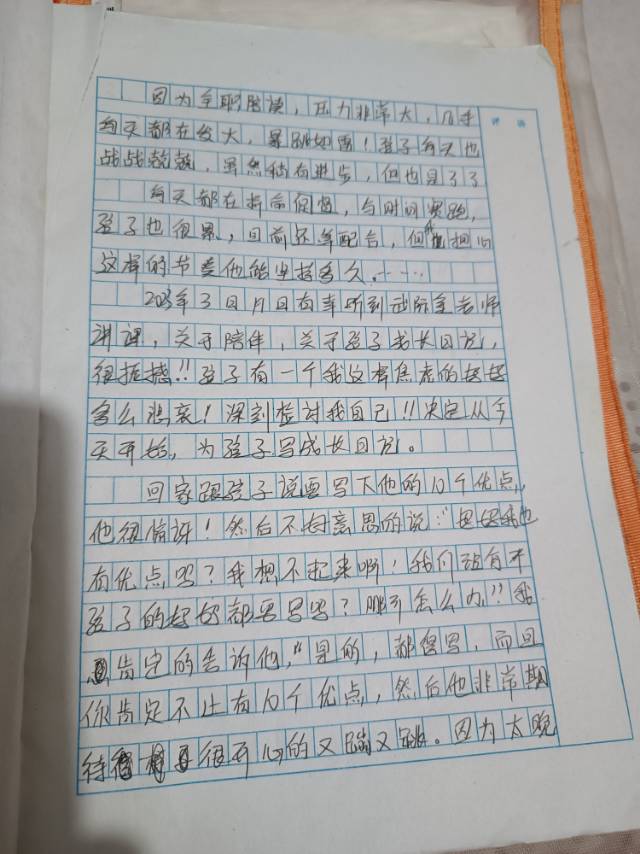 评语
因为全职陪读，压力非常大，几乎
每天都在发火，暴跳如雷！孩子每天也
战战兢兢，虽然稍有进步，但也是了了
每天都在持命促督，与时间赛跑，
孩子也很累，目前还算配合，但我担心
这样的节奏他能坚持多久……
203年3日月日有幸听到 老师
讲课，关于陪伴，关于孩子成长日记，
很振撼!!孩子有一个我这样焦虑的妈妈
多么悲哀！深刻检讨我自己!!决定从今
天开始，为孩子写成长日记。
回家跟孩子说要写下他的10个优点，
他很惊讶！然后不好意思的说："妈妈我也
有优点吗？我想不起来啊！我们 有不
孩子的妈妈都要写吗？ 怎么办!!我
肯定的告诉他，"是的，都得写，而且
你肯定不止有10个优点，然后他非常期
待 很开心的又蹦又跳。因为太晚